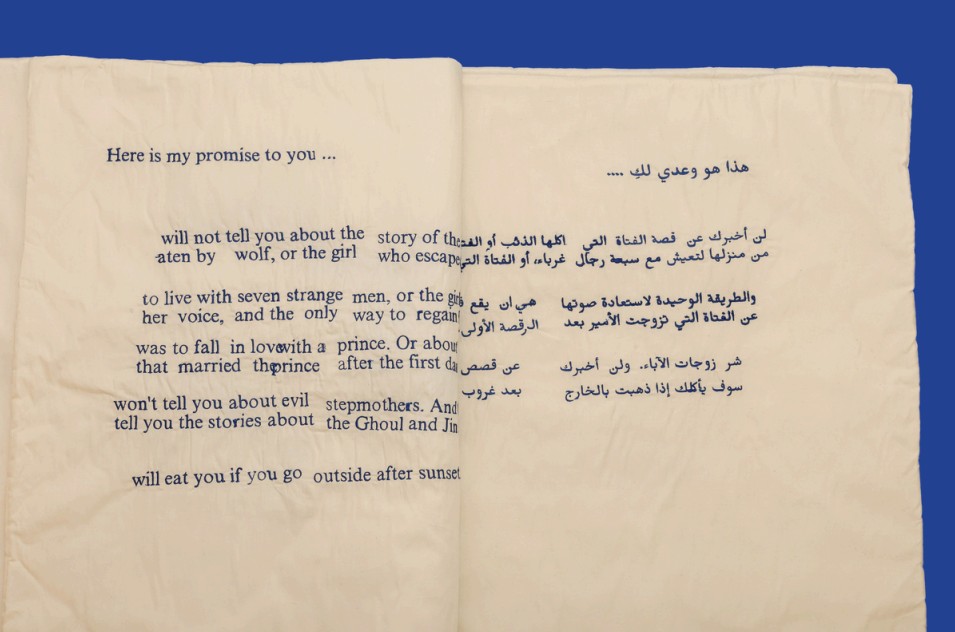 Here is my promise to you ...
will not tell you about the story of the
aten by wolf, or the girl who escape
to live with seven strange men, or the girl
her voice, and the only way to regain
was to fall in love with a prince. Or about
that married the prince after the first da
won't tell you about evil stepmothers. And
tell you the stories about the Ghoul and Jin
will eat you if you go outside after sunset
هذا هو وعدي لكِ ....
لن أخبرك عن قصة الفتاة التي اكلها الذئب أو الفتا
من منزلها لتعيش مع سبعة رجال غرباء، أو الفتاة التي
والطريقة الوحيدة لاستعادة صوتها هي ان يقع
عن الفتاة التي تزوجت الأمير بعد الرقصة الأولى
شر زوجات الآباء. ولن أخبرك عن قصص
سوف يأكلك إذا ذهبت بالخارج بعد غروب